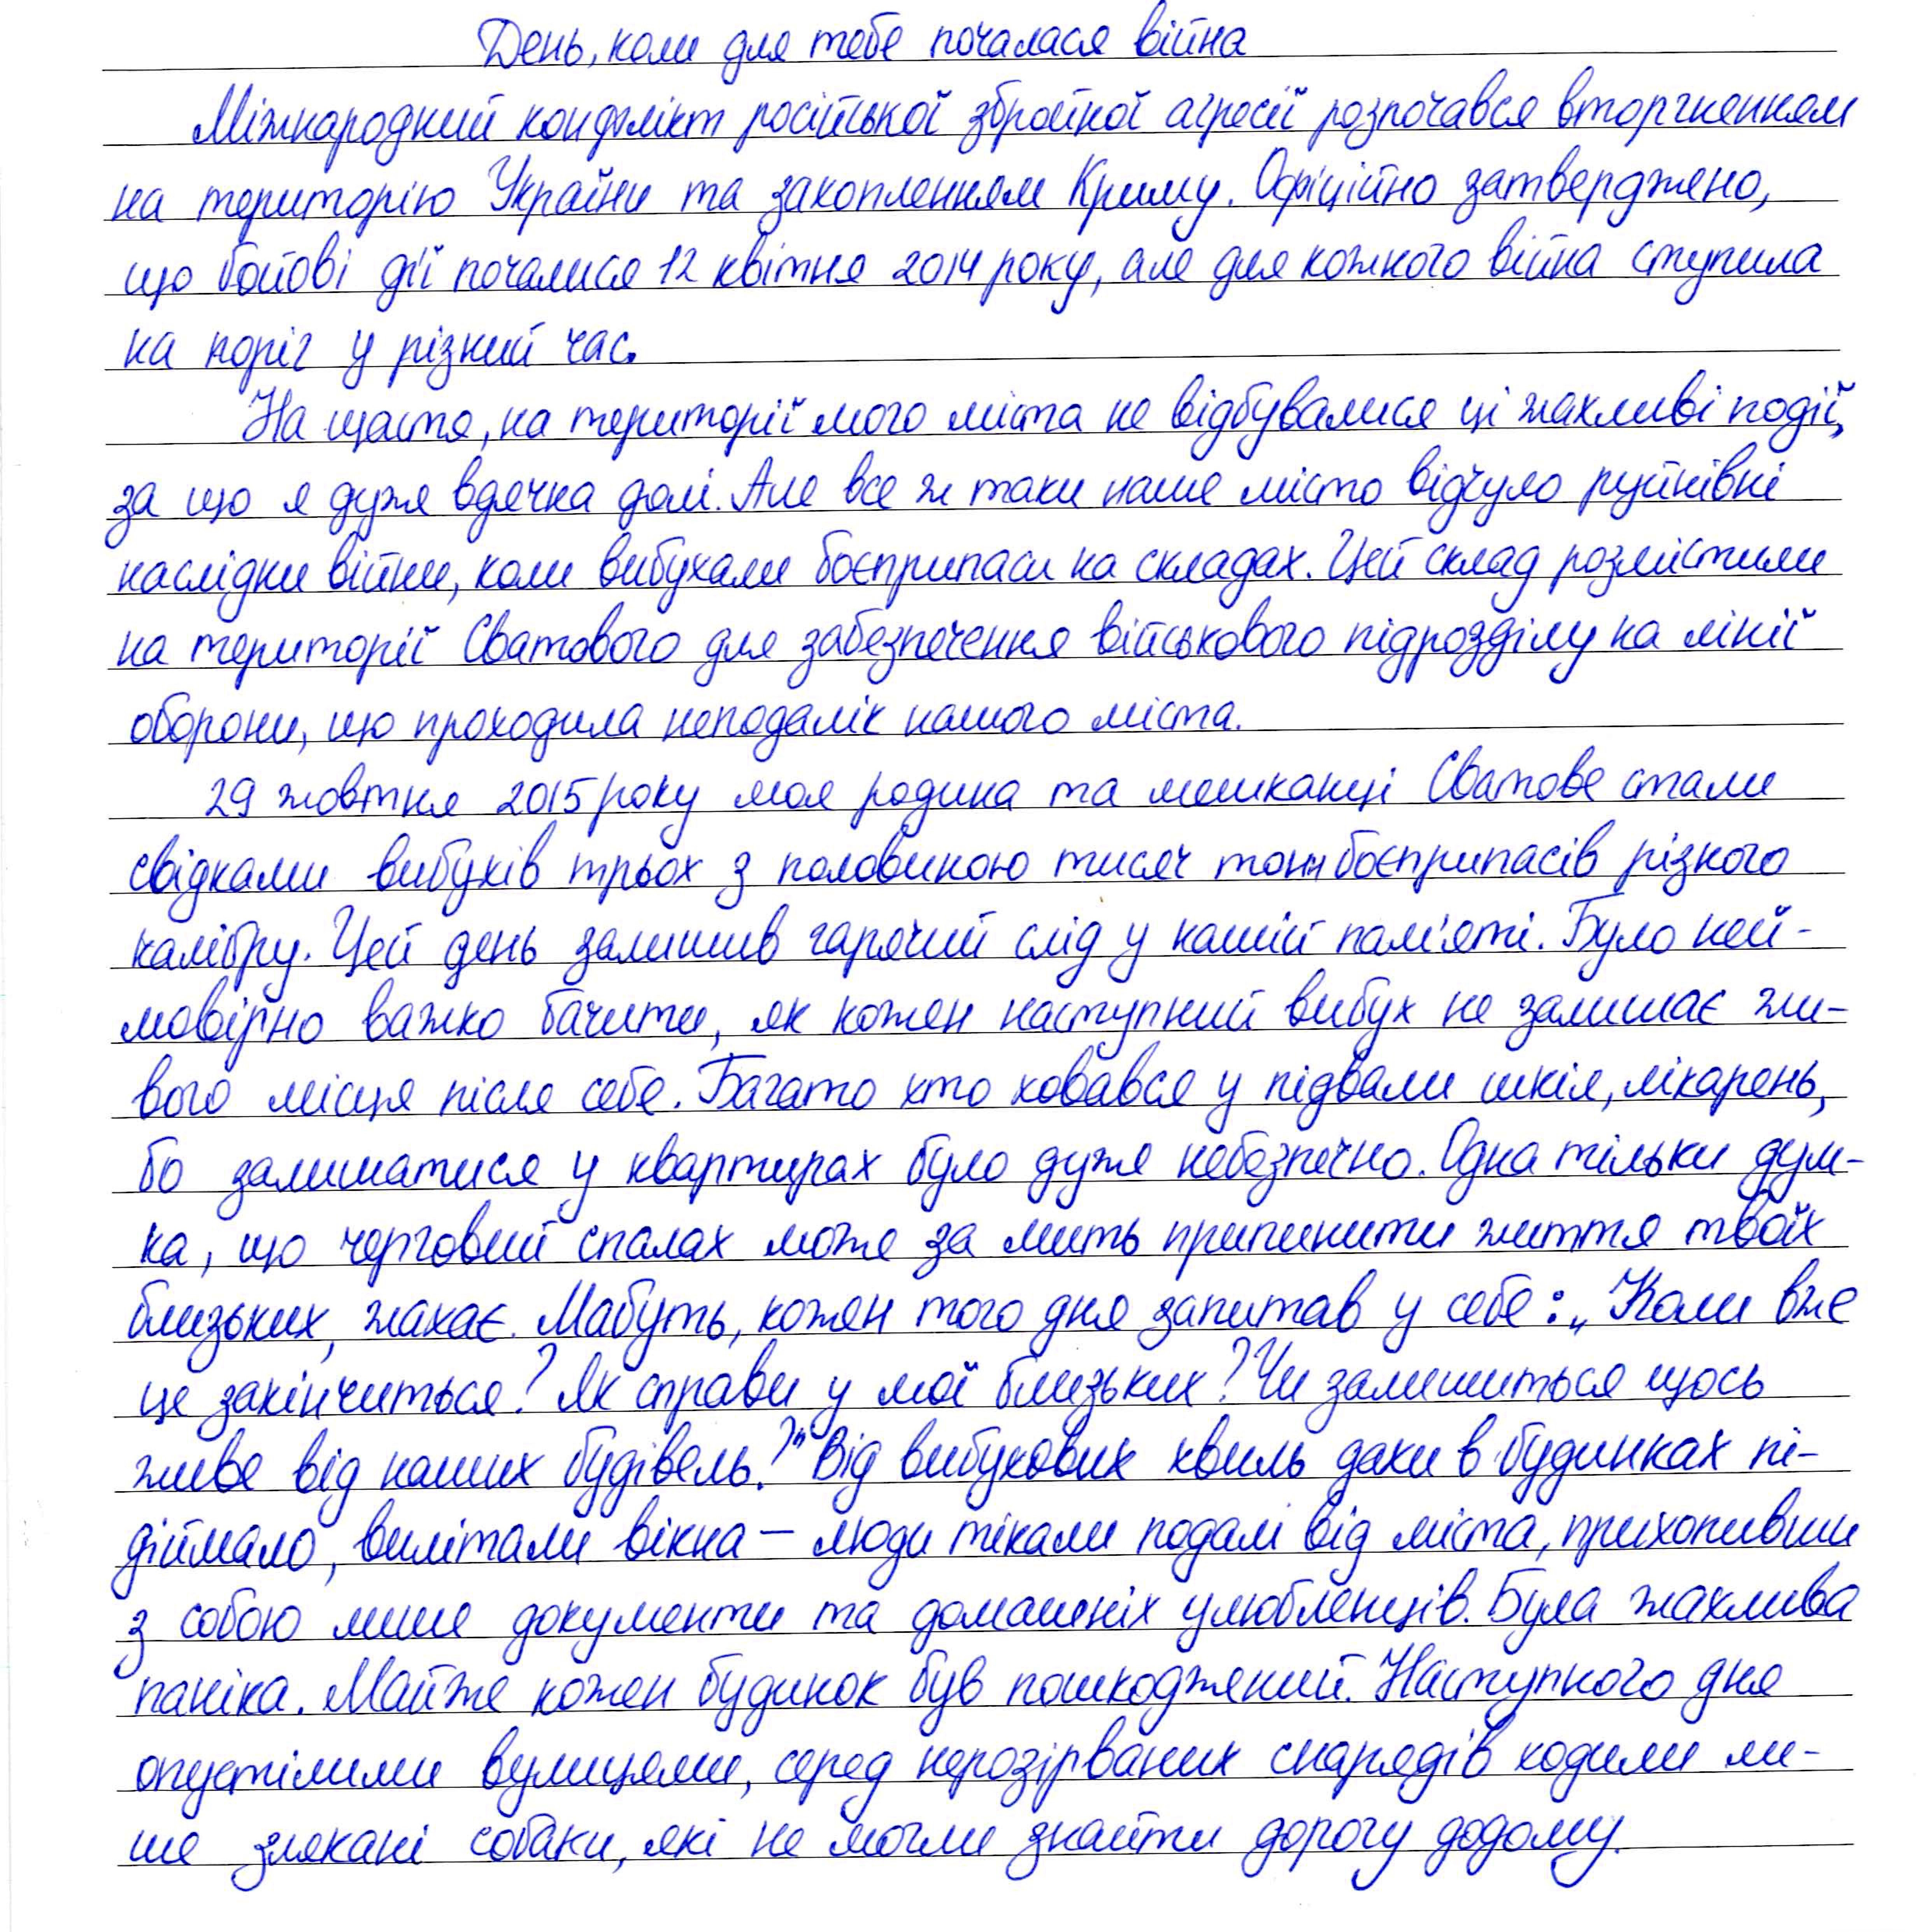 День, коли для тебе почалася війна
Міжнародний конфлікт російської збройної агресії розпочався вторгненням
на територію України та захопленням Криму. Офіційно затверджено,
що бойові дії почалися 12 квітня 2014 року, але для кожного війна ступила
на поріг у різний час.
На щастя, на території мого міста не відбувалися ці жахливі події,
за що я дуже вдячна долі. Але все ж таки наше місто відчуло руйнівні
наслідки війни, коли вибухали боєприпаси на складах. Цей склад розмістили
на території Сватового для забезпечення військового підрозділу на лінії
оборони, що проходила неподалік нашого міста.
29 жовтня 2015 року моя родина та мешканці Сватове стали
свідками вибухів трьох з половиною тисяч тонн боєприпасів різного
калібру. Цей день залишив гарячий слід у нашій пам'яті. Було ней-
мовірно важко бачити, як кожен наступний вибух не залишає жи-
вого місця після себе. Багато хто ховався у підвали шкіл, лікарень,
бо залишатися у квартирах було дуже небезпечно. Одна тільки дум-
ка, що черговий спалах може за мить припинити життя твоїх
близьких, жахає. Мабуть, кожен того дня запитав у себе: „Коли вже
це закінчиться? Як справи у мої близьких? Чи залишиться щось
живе від наших будівель?" Від вибухових хвиль дахи в будинках пі-
діймало, вилітали вікна – люди тікали подалі від міста, прихопивши
з собою лише документи та домашніх улюбленців. Була жахлива
паніка. Майже кожен будинок був пошкоджений. Наступного дня
опустілими вулицями, серед нерозірваних снарядів ходили ли-
ше злякані собаки, які не могли знайти дорогу додому.